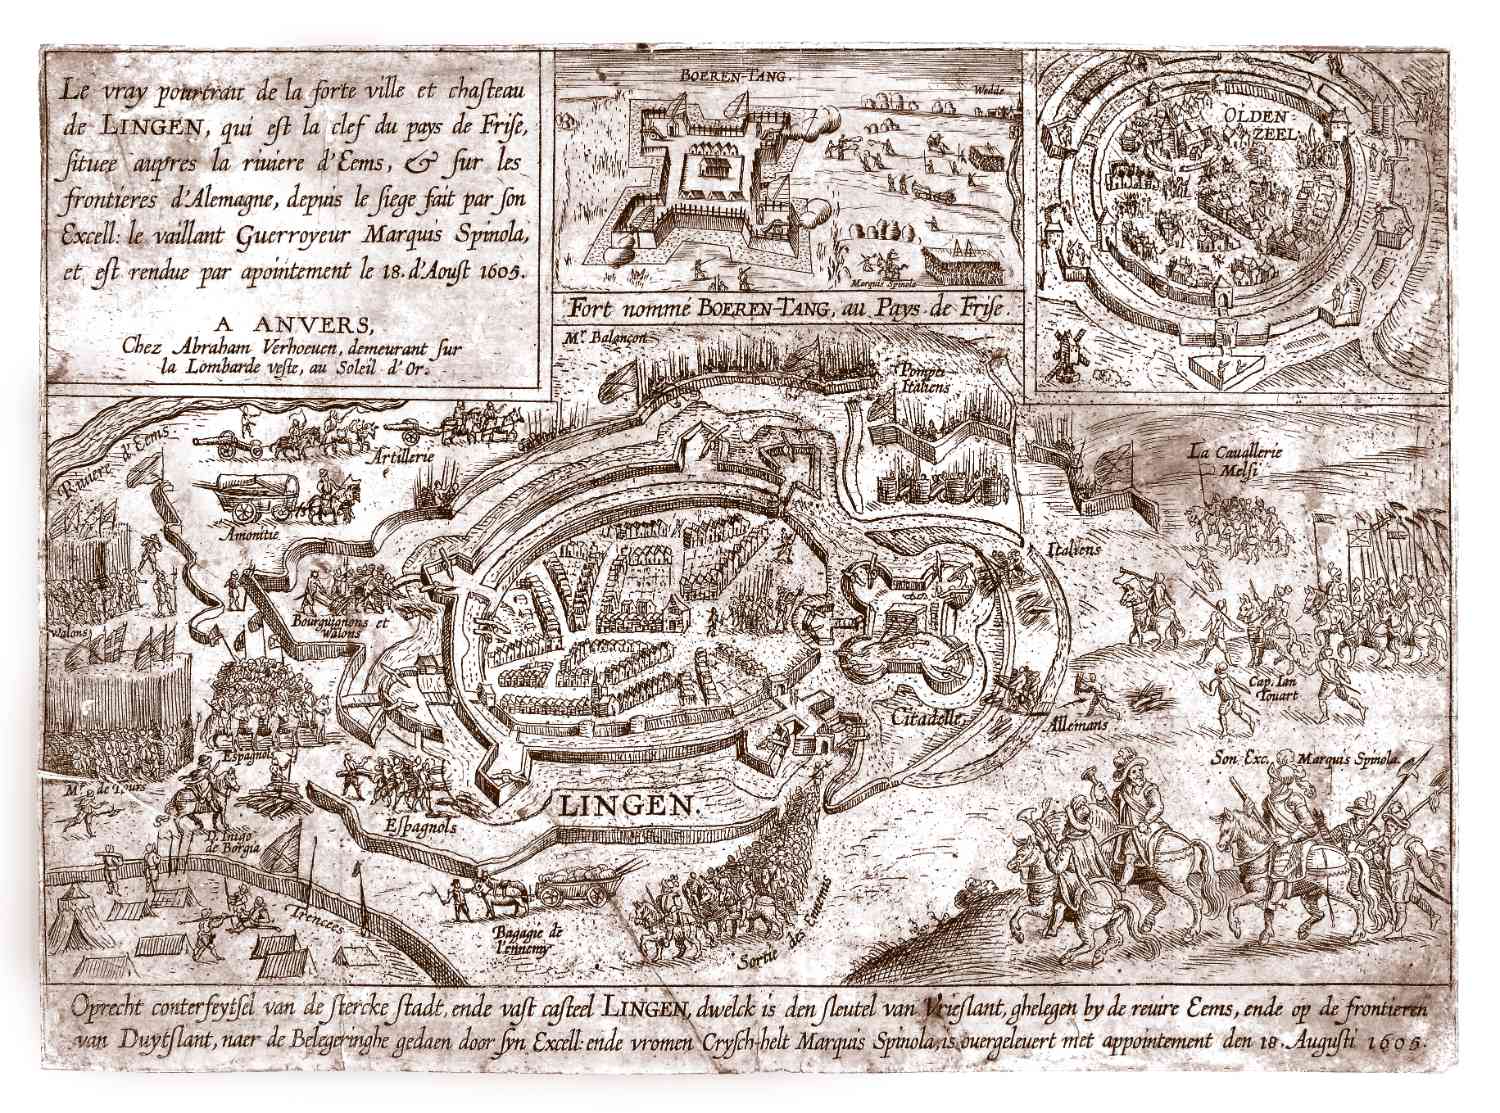 Le vray pourtrait de la forte ville et chaſteau
de LINGEN, qui eſt la clef du pays de Friſe,
ſituee aupres la riuiere d'Eems, & ſur les
frontieres d'Alemagne, depuis le ſiege fait par ſon
Excell: le vaillant Guerroyeur Marquis Spinola,
et eſt rendue par apointement le 18. d'Aouſt 1605.
A ANVERS,
Chez Abraham Verhoeuen, demeurant ſur
la Lombarde veſte, au Soleil d'Or.
BOEREN-TANG.
Wedde
Marquis Spinola
Fort nommé BOEREN-TANG, au Pays de Friſe.
OLDEN-
ZEEL.
Mr. Balançon
Pompei
Italiens
Riuiere d'Eems
Artillerie
Amonitie
La Cauallerie
Melſi
Italiens
Walons
Bourguignons et
Walons
Cap. Ian
Touart
Citadelle
Allemans
Eſpagnols
Son Exc. Marquis Spinola.
Mr. de Tours
LINGEN.
Eſpagnols
D. Inigo
de Borgia
Trencees
Bagage de
l'ennemy
Sortie des Ennemis
Oprecht conterfeytſel van de ſtercke ſtadt, ende vaſt caſteel LINGEN, dwelck is den ſleutel van Vrieſlant, ghelegen by de reuire Eems, ende op de frontieren
van Duytſlant, naer de Belegeringhe gedaen door ſyn Excell: ende vromen Cryſch-helt Marquis Spinola, is ouergeleuert met appointement den 18. Auguſti 1605.